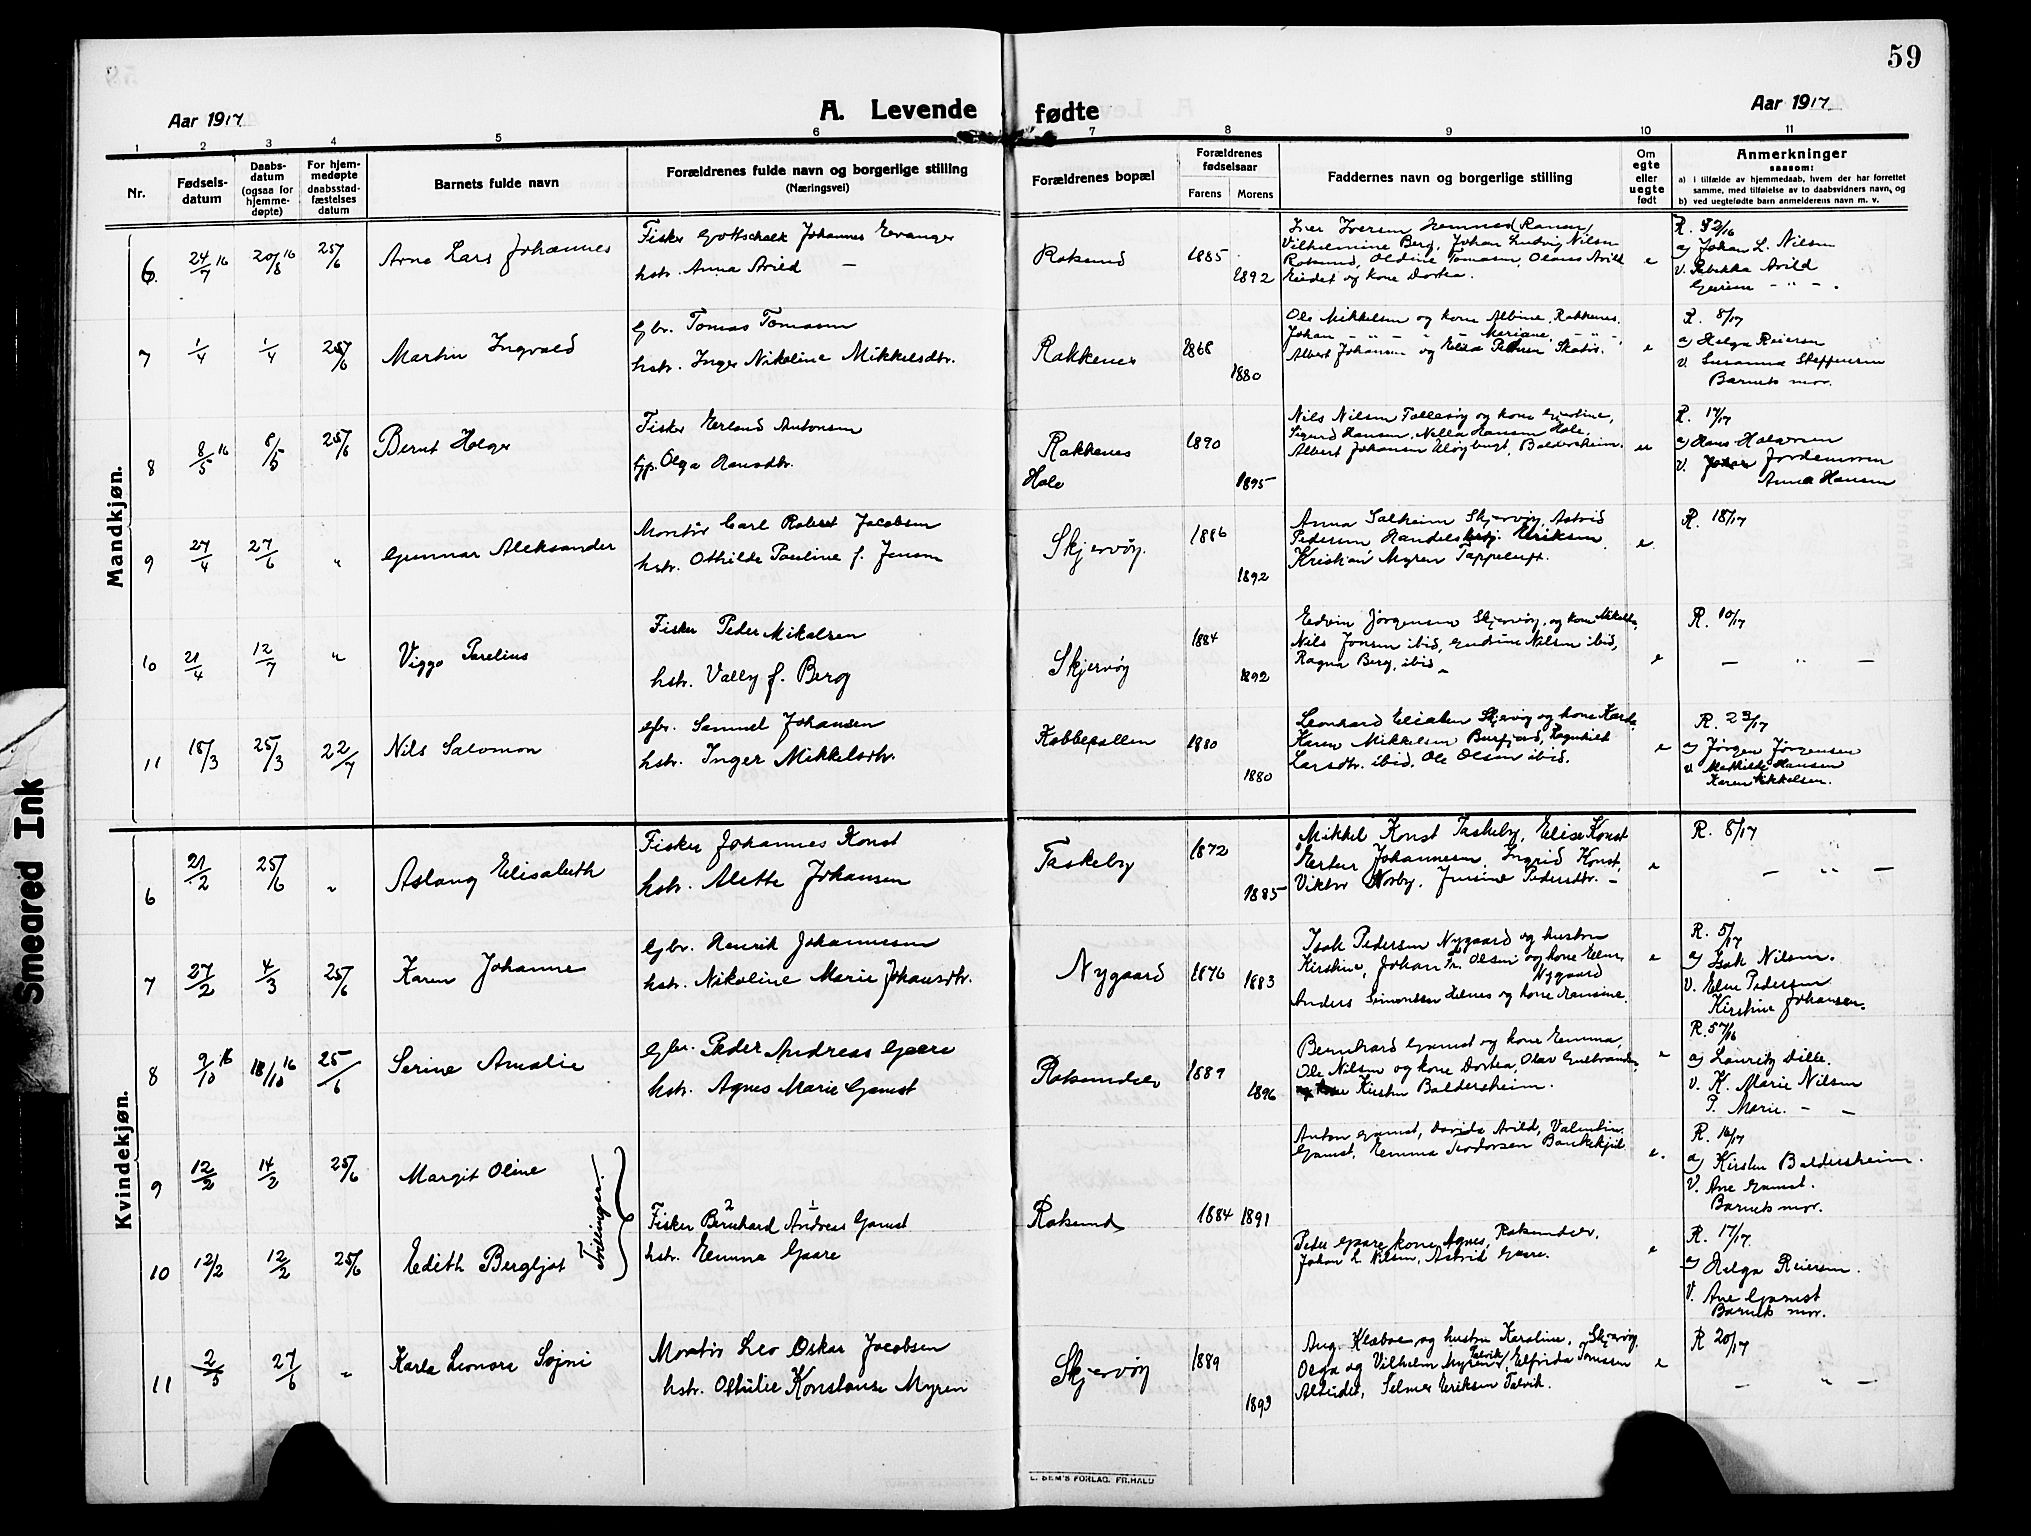 59
Aar 1917
A. Levende fødte
Aar 1917
1 2 3 4 5 6 7 8 9 10 11
Nr.
Fødsels-
datum
Daabs-
datum
(ogsaa for
hjemme-
døpte)
For hjem-
medøpte
daabsstad-
fæstelses
datum
Barnets fulde navn
Forældrenes fulde navn og borgerlige stilling
(Næringsvei)
Forældrenes bopæl
Forældrenes
fødselsaar
Farens Morens
Faddernes navn og borgerlige stilling
Om
egte
eller
uegte
født
Anmerkninger
saasom:
a) i tilfælde av hjemmedaab, hvem der har forrettet
samme, med tilføielse av to daabsvidners navn, og
b) ved uegtefødte barn anmelderens navn m. v.
Mandkjøn.
6 24/7 16 20/8 16 25/6 Arne Lars Johannes
Fisker Gottschalk Johannes Evanger
hstr. Anna Arild —
Roksund 1885 1892
Vilhelmine Berg, Johan Ludvig Nilsen
Roksund, Oldine Tomasen, Olaus Arild
Eidet og kone Dortea. e
a) Johan L. Nilsen
v. Rebekka Arild
7 1/4 1/4 25/6 Martin Ingvald
Gbr. Tomas Tomasen
hstr. Inger Nikoline Mikkelsdtr.
Rakkenes 1868 1880
Ole Mikkelsen og kone Albine, Rakkenes.
Johan — " — " — Mariane, — " —
Albert Johansen og Elisa Pedersen e
R. 8/17
a) Helga Reiersen
v. Susanna Steffensen
Barnets mor.
8 8/5 16 8/5 25/6 Bernt Holger
Fisker Erland Antonsen
tjp. Olga Hansdtr.
Rakkenes
Hole 1890 1895
Nils Nilsen Follesøy og kone
Sigurd Hansen, Nella Hansen Hole,
Albert Johansen Uløybugt, Baldersheim. ue
R. 17/17
a) Hans Halvorsen
v. Jordemoren
Anna Hansen
9 27/4 27/6 " Gunnar Aleksander
Montør Carl Robert Jacobsen
hstr. Othilde Pauline f. Jensen
Skjervøy. 1886 1892
Anna Solheim Skjervøy, Astrid
Pedersen Eriksen
Kristian Myren Tappeluft. e
R. 18/17
10 21/4 12/7 " Viggo Parelius
Fisker Peder Mikalsen
hstr. Vally f. Berg
Skjervøy 1884 1892
Edvin Jørgensen Skjervøy, og kone
Nils Jonsen ibid, Gudrun Nilsen ibid,
Ragna Berg, ibid — e
R. 10/17
— " —
11 18/3 25/3 22/7 Nils Salomon
gbr. Samuel Johansen
hstr. Inger Mikkelsdtr.
Kobbepollen 1880 1880
Leonhard Eliasen Skjervøy og kone
Karen Mikkelsen Burfjord, Ragnhild
Larsdtr. ibid, Ole Olsen ibid. e
R. 23/17
a) Jørgen Jørgensen
v. Mathilde Hansen
Karen Mikkelsen.
Kvindekjøn.
6 21/2 25/6 " Aslaug Elisabeth
Fisker Johannes Konst
hstr. Alette Johansen
Taskeby 1872 1885
Mikkel Konst Taskeby, Elise Konst
Johannesen, Ingrid Konst,
Viktor Norby, Jensine Pedersdtr. — e
R. 8/17
— " —
7 27/2 4/3 25/6 Karen Johanne
Gbr. Henrik Johannesen
hstr. Nikoline Marie Johansdtr.
Nygaard 1876 1883
Isak Pedersen Nygaard og hustru
Kirstine, Johan Fr. Olsen og kone Elen,
Nygaard
Anders Simonsen Helnes og kone Hansine. e
R. 5/17
a) Isak Nilsen.
v. Elen Pedersen
Kirstine Johansen.
8 9/10 16 18/10 16 25/6 Serine Amalie
Gbr. Peder Andreas Gaare
hstr. Agnes Marie Gamst
Roksundelv 1889 1896
Bernhard Gamst og kone Emma,
Ole Nilsen og kone Dortea, Olav
Kirsten Baldersheim. e
R. 57/16
a) Lauritz Lille.
v. K. Marie Nilsen
P. Marie. — —
9 12/2 14/2 25/6 Margit Oline
Tvillinger.
Anton Gamst, Davida Arild, Valentin
Gamst, Emma Teodorsen e.
R. 16/17
a) Kirsten Baldersheim.
v. Ane Gamst.
Barnets mor.
Fisker Bernhard 2 Andreas 1 Gamst
hstr. Emma Gaare
Roksund 1884 1891
10 12/2 12/2 25/6 Edith Bergljot
Peder Gaare, kone Agnes, Roksundelv,
Johan L. Nilsen, Astrid Gaare. e
R. 17/17.
a) Helga Reiersen.
v. Ane Gamst
Barnets mor.
11 2/5 27/6 " Karla Leonora Sojni
Montør Leo Oskar Jacobsen
hstr. Othilie Konstanse Myren
Skjervøy 1889 1893
Aug. Klæboe og hustru Karoline, Skjervøy,
Olga og Vilhelm Myren Talvik, Elfrida Tomassen
Alteidet, Selmer Eriksen Talvik. e
R 20/17
— " —
L. BEM'S FORLAG. FR.HALD
Smeared Ink